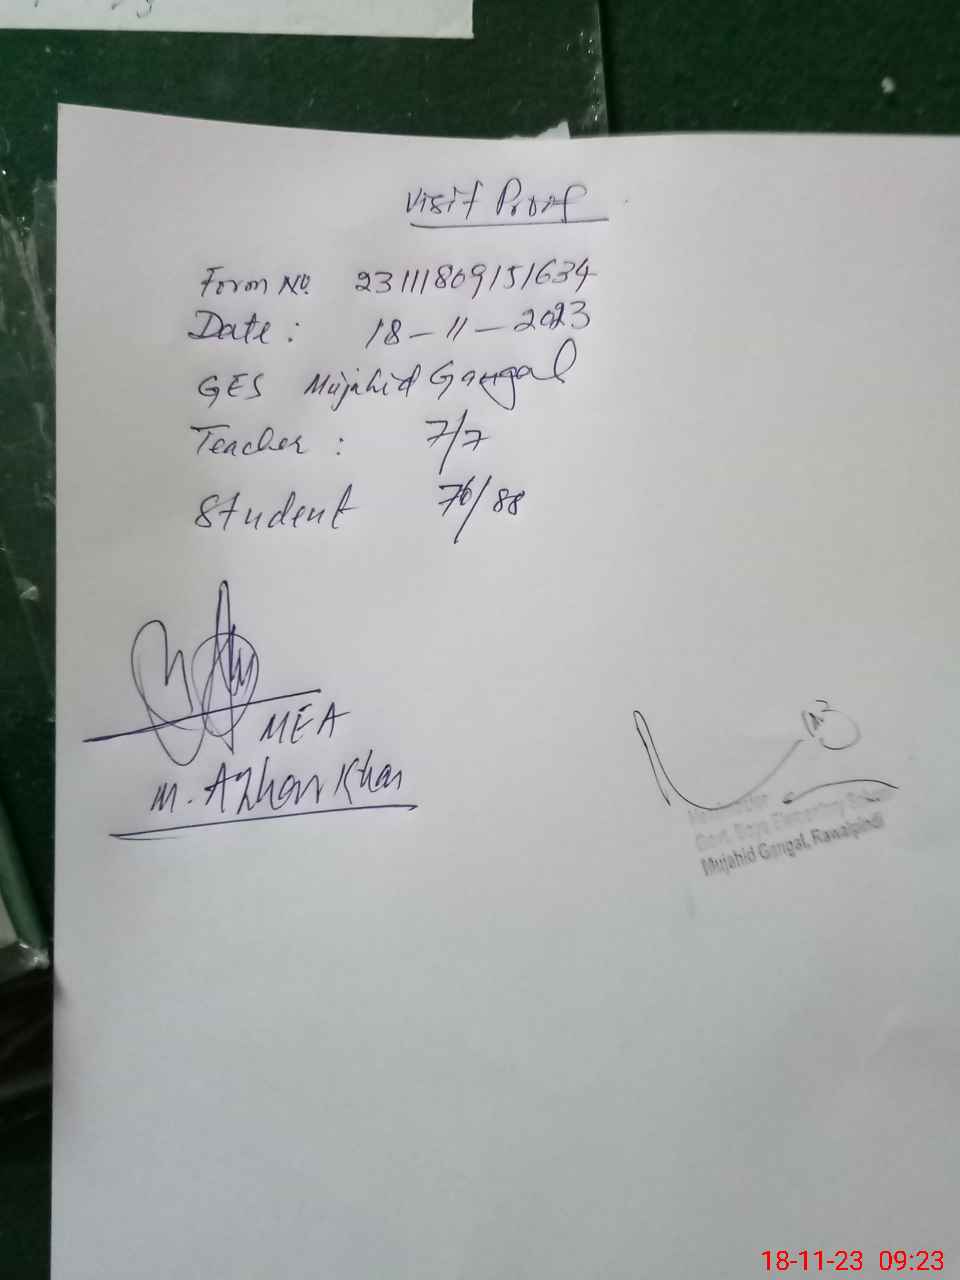 Visit Proof
Form No. 23111809151634
Date: 18-11-2023
GES Mujahid Gangal
Teacher: 7/7
Student 76/88
MEA
M. Azhar Khan
Govt. Boys Elementary School
Mujahid Gangal, Rawalpindi
18-11-23 09:23